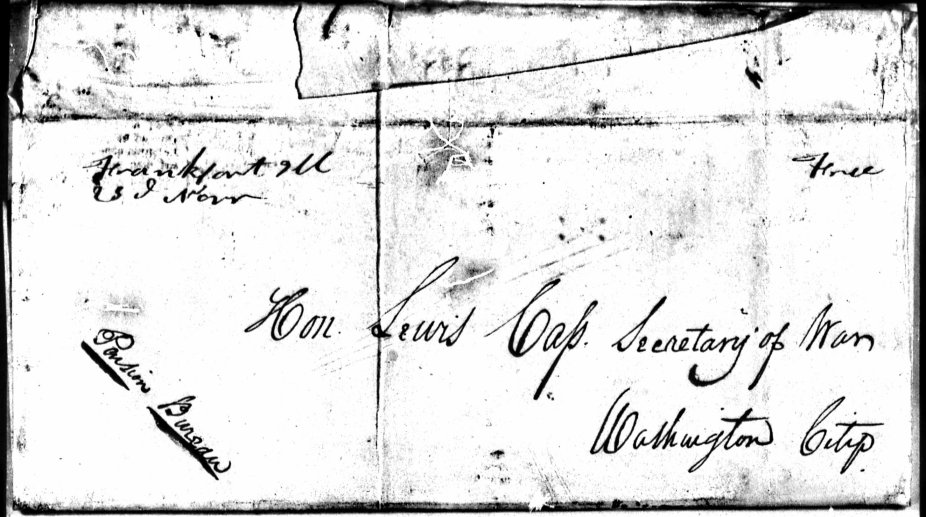 Frankfort Ill
23d Novr
Free
Hon. Lewis Cass. Secretary of War
Washington City
Pension Bureau